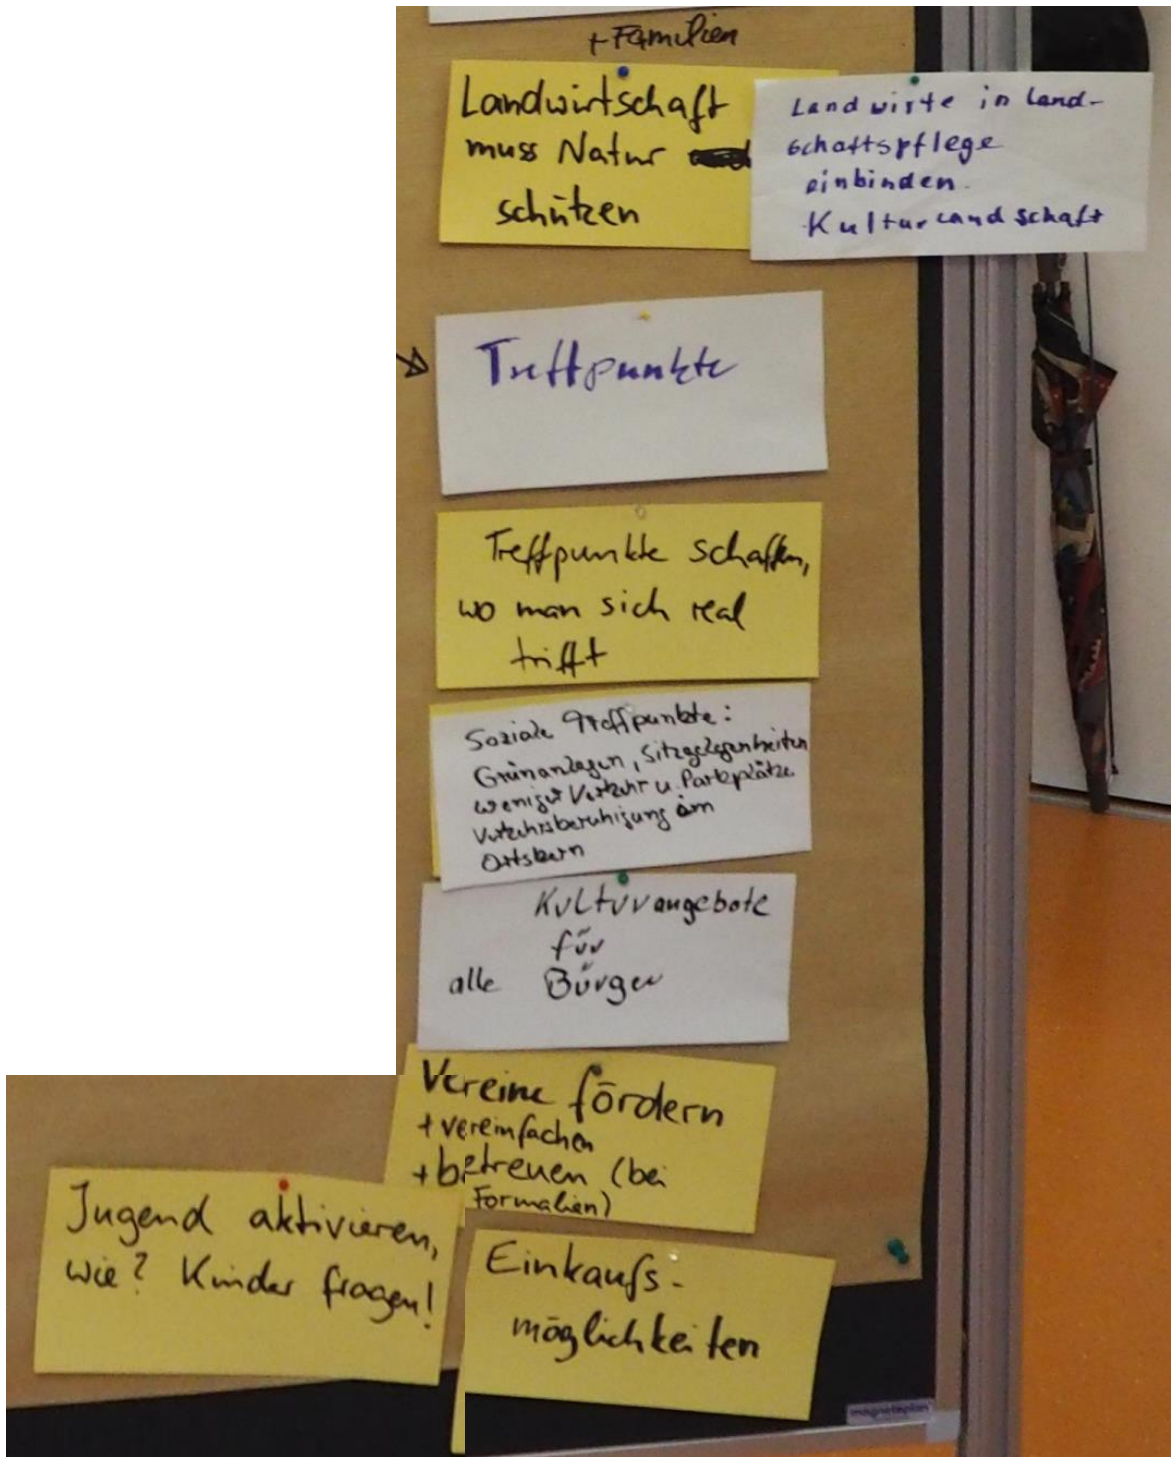 + Familien
Landwirtschaft
muss Natur
schützen
Landwirte in Land-
schaftspflege
einbinden.
Kulturlandschaft
Treffpunkte
Treffpunkte schaffen,
wo man sich real
trifft
Soziale Treffpunkte:
Grünanlagen, Sitzgelegenheiten
weniger Verkehr u. Parkplätze
Verkehrsberuhigung im
Ortskern
Kulturangebote
für
alle Bürger
Vereine fördern
+ vereinfachen
+ betreuen (bei
Formalien)
Jugend aktivieren,
wie? Kinder fragen!
Einkaufs-
möglichkeiten
magnetoplan